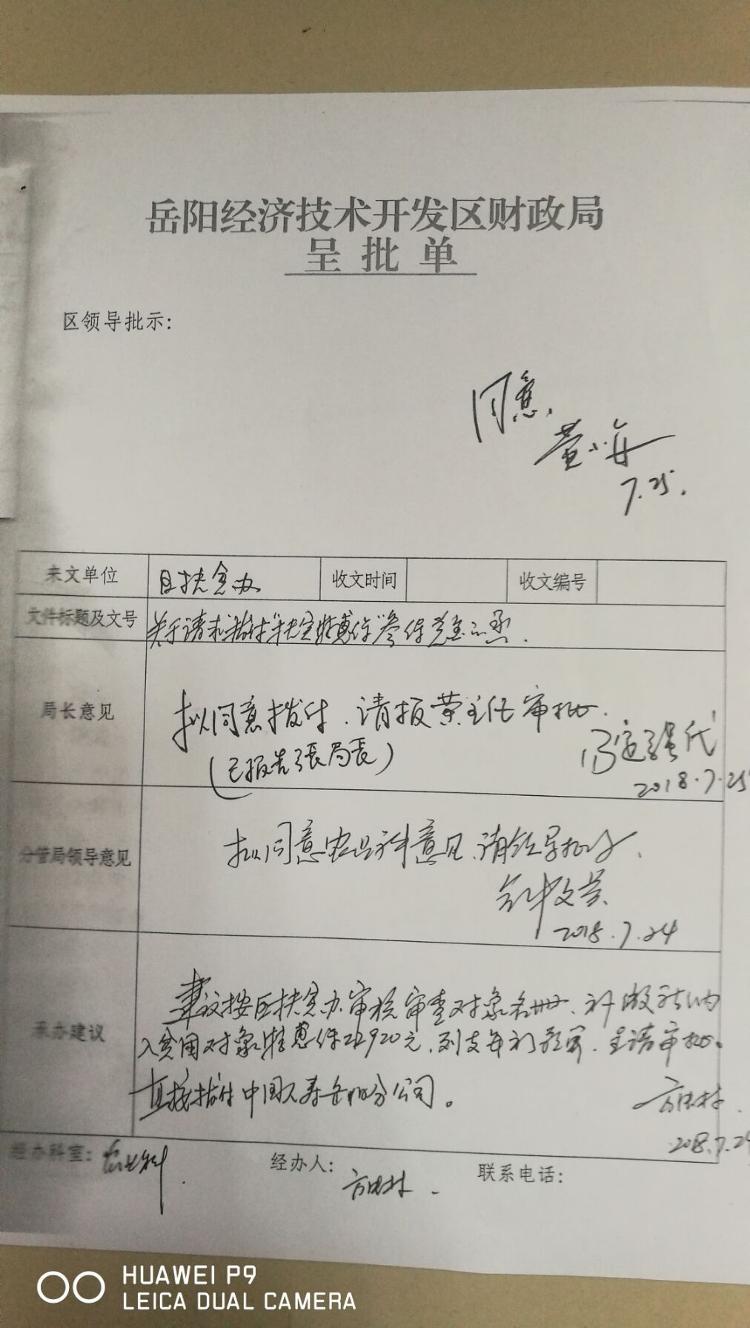 岳阳经济技术开发区财政局
呈批单
区领导批示：
同意，
7.25.
来文单位 区扶贫办 收文时间 收文编号
文件标题及文号 关于请求拨付扶贫特惠保参保资金的函.
局长意见 拟同意拨付.请报荣主任审批.
(已报告張局長)
2018.7.25
分管局领导意见 拟同意农业科意见,请领导批示.
2018.7.24
承办建议 建议按区扶贫办审核审查对象名册,补缴新纳
入贫困对象特惠保22920元,列支年初预算.呈请审批。
直接拨付中国人寿岳阳分公司。
2018.7.24
经办科室：农业科 经办人： 联系电话：
HUAWEI P9
LEICA DUAL CAMERA